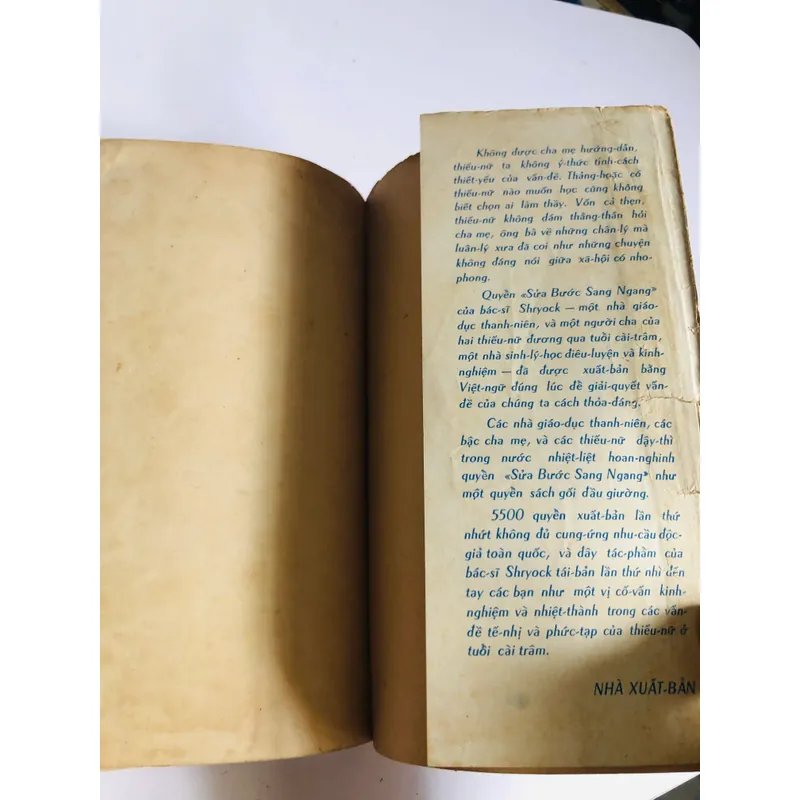 Không được cha mẹ hướng-dẫn,
thiếu-nữ ta không ý-thức tính-cách
thiết-yếu của vấn-đề. Thảng-hoặc có
thiếu-nữ nào muốn học cũng không
biết chọn ai làm thầy. Vốn cả thẹn,
thiếu-nữ không dám thẳng-thắn hỏi
cha mẹ, ông bà về những chân-lý mà
luân-lý xưa đã coi như những chuyện
không đáng nói giữa xã-hội có nho-
phong.
Quyển «Sửa Bước Sang Ngang»
của bác-sĩ Shryock — một nhà giáo-
dục thanh-niên, và một người cha của
hai thiếu-nữ đương qua tuổi cài-trâm,
một nhà sinh-lý-học điêu-luyện và kinh-
nghiệm — đã được xuất-bản bằng
Việt-ngữ đúng lúc để giải-quyết vấn-
đề của chúng ta cách thỏa-đáng.
Các nhà giáo-dục thanh-niên, các
bậc cha mẹ, và các thiếu-nữ dậy-thì
trong nước nhiệt-liệt hoan-nghinh
quyển «Sửa Bước Sang Ngang» như
một quyển sách gối đầu giường.
5500 quyển xuất-bản lần thứ
nhứt không đủ cung-ứng nhu-cầu độc-
giả toàn quốc, và đây tác-phẩm của
bác-sĩ Shryock tái-bản lần thứ nhì đến
tay các bạn như một vị cố-vấn kinh-
nghiệm và nhiệt-thành trong các vấn-
đề tế-nhị và phức-tạp của thiếu-nữ ở
tuổi cài trâm.
NHÀ XUẤT-BẢN